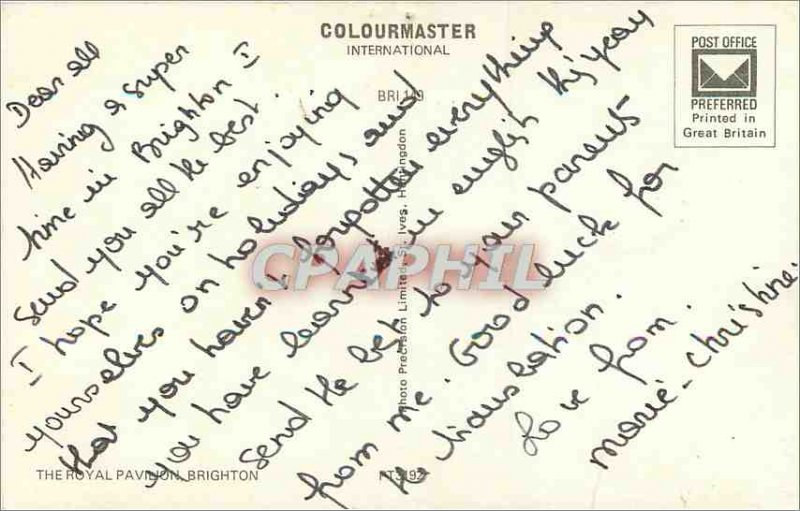 COLOURMASTER
INTERNATIONAL
BRI 149
POST OFFICE
PREFERRED
Printed in
Great Britain
Dear all
Having a super
time in Brighton I
send you all the best.
I hope you're enjoying
yourselves on holidays and
that you haven't forgotten everything
you have learnt in english this year
send the best to your parents
from me. Good luck for
the translation.
Love from.
Marie-Christine.
CPAPHIL
Photo Precision Limited, St. Ives, Huntingdon
THE ROYAL PAVILION, BRIGHTON